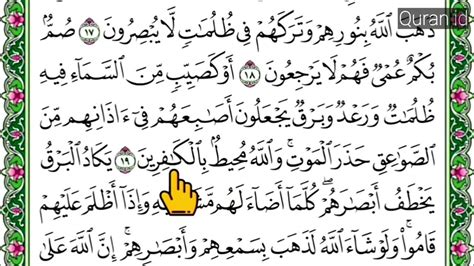 Quran id
ذَهَبَ ٱللَّهُ بِنُورِهِمْ وَتَرَكَهُمْ فِى ظُلُمَٰتٍ لَّا يُبْصِرُونَ ١٧ صُمٌّۢ
بُكْمٌ عُمْىٌ فَهُمْ لَا يَرْجِعُونَ ١٨ أَوْ كَصَيِّبٍ مِّنَ ٱلسَّمَآءِ فِيهِ
ظُلُمَٰتٌ وَرَعْدٌ وَبَرْقٌ يَجْعَلُونَ أَصَٰبِعَهُمْ فِىٓ ءَاذَانِهِم مِّنَ
ٱلصَّوَٰعِقِ حَذَرَ ٱلْمَوْتِ ۚ وَٱللَّهُ مُحِيطٌۢ بِٱلْكَٰفِرِينَ ١٩ يَكَادُ ٱلْبَرْقُ
يَخْطَفُ أَبْصَٰرَهُمْ ۖ كُلَّمَآ أَضَآءَ لَهُم وَإِذَآ أَظْلَمَ عَلَيْهِمْ
قَامُوا۟ ۚ وَلَوْ شَآءَ ٱللَّهُ لَذَهَبَ بِسَمْعِهِمْ وَأَبْصَٰرِهِمْ ۚ إِنَّ ٱللَّهَ عَلَىٰ